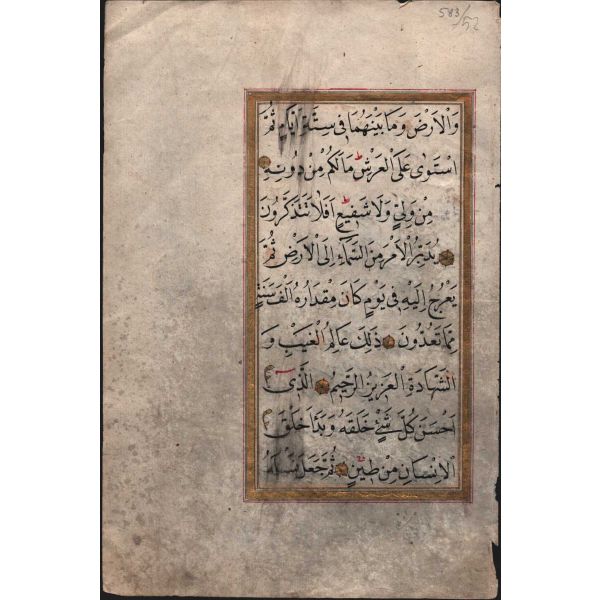 583/52
وَالْاَرْضَ وَمَا بَيْنَهُمَا فِى سِتَّةِ اَيَّامٍ ثُمَّ
اسْتَوٰى عَلَى الْعَرْشِ مَالَكُمْ مِنْ دُونِهِ
مِنْ وَلِيٍّ وَلَا شَفِيعٍ اَفَلَا تَتَذَكَّرُونَ
يُدَبِّرُ الْاَمْرَ مِنَ السَّمَاءِ اِلَى الْاَرْضِ ثُمَّ
يَعْرُجُ اِلَيْهِ فِى يَوْمٍ كَانَ مِقْدَارُهُ اَلْفَ سَنَةٍ
مِمَّا تَعُدُّونَ ذٰلِكَ عَالِمُ الْغَيْبِ وَ
الشَّهَادَةِ الْعَزِيزُ الرَّحِيمُ الَّذِى
اَحْسَنَ كُلَّ شَىْءٍ خَلَقَهُ وَبَدَاَ خَلْقَ
الْاِنْسَانِ مِنْ طِينٍ ثُمَّ جَعَلَ نَسْلَهُ